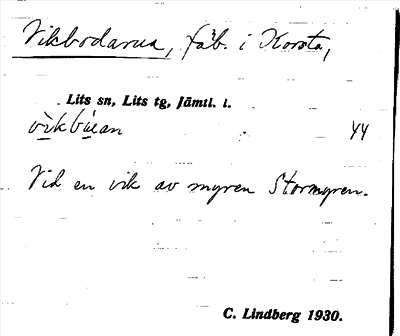 Vikbodarna, fäb. i Korsta,
Lits sn, Lits tg, Jämtl. l.
vìkbúean 44
Vid en vik av myren Stormyren.
C. Lindberg 1930.